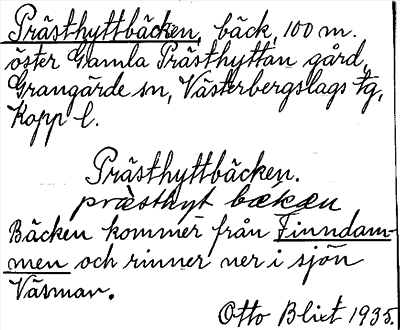 Prästhyttbäcken, bäck, 100 m.
öster Gamla Prästhyttan gård,
Grangärde sn, Västerbergslags tg,
Kopp l.
Prästhyttbäcken.
præsthyt bækæn
Bäcken kommer från Finndam-
men och rinner ner i sjön
Väsman.
Otto Blixt 1935.